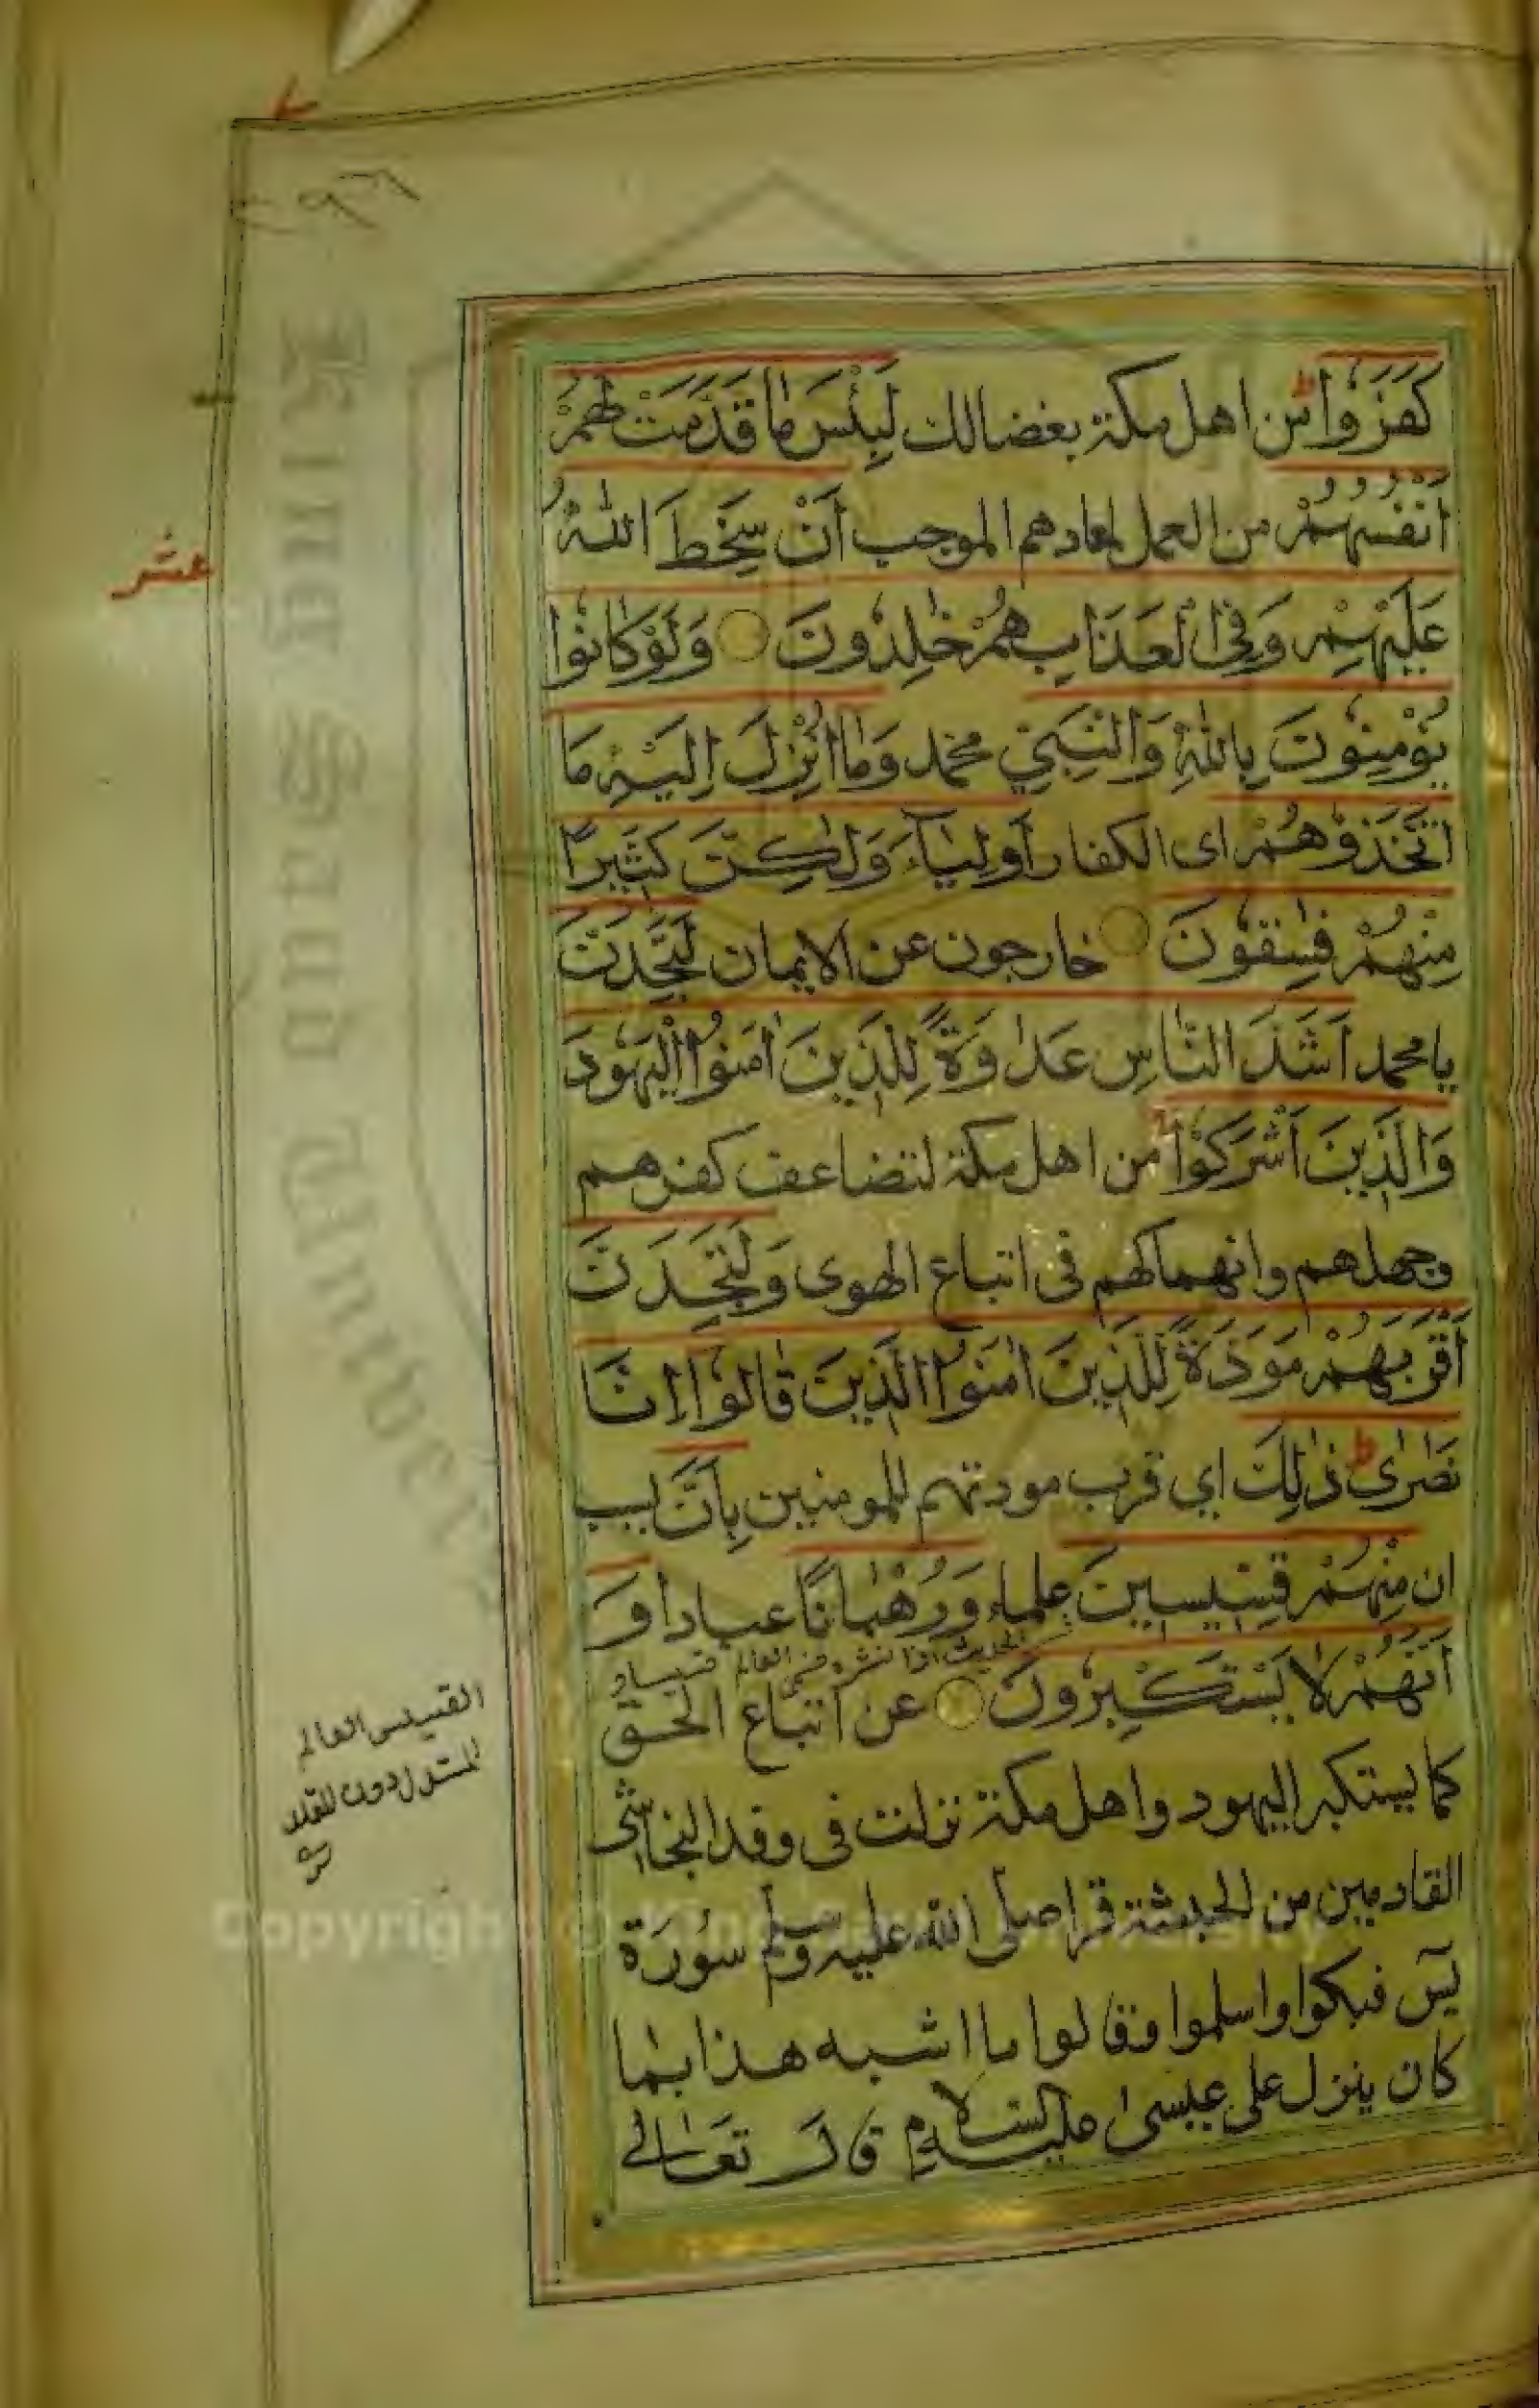 كَفَرُوا ط من اهل مكة بغضا لك لَبِئْسَ مَا قَدَّمَتْ لَهُمْ
اَنْفُسُهُمْ من العمل لمعادهم الموجب اَنْ سَخِطَ اللّٰهُ
عَلَيْهِمْ وَفِي الْعَذَابِ هُمْ خٰلِدُونَ ○ وَلَوْ كَانُوا
يُؤْمِنُونَ بِاللّٰهِ وَالنَّبِيِّ محمد وَمَا اُنْزِلَ اِلَيْهِ مَا
اتَّخَذُوْهُمْ اى الكفار اَوْلِيَآءَ وَلٰكِنَّ كَثِيرًا
مِنْهُمْ فٰسِقُونَ ○ خارجون عن الايمان لَتَجِدَنَّ
يا محمد اَشَدَّ النَّاسِ عَدٰوَةً لِلَّذِينَ اٰمَنُوا الْيَهُودَ
وَالَّذِينَ اَشْرَكُوْا من اهل مكة لتضاعف كفرهم
وجهلهم وانهماكهم فى اتباع الهوى وَلَتَجِدَنَّ
اَقْرَبَهُمْ مَوَدَّةً لِلَّذِينَ اٰمَنُوا الَّذِينَ قَالُوا اِنَّا
نَصٰرٰى ط ذٰلِكَ اي قرب مودتهم للمومنين بِاَنَّ بسبب
ان مِنْهُمْ قِسِّيسِينَ علماء وَرُهْبَانًا عبادا وَ
اَنَّهُمْ لَا يَسْتَكْبِرُونَ ○ عن اتباع الحق
كما يستكبر اليهود واهل مكة نزلت فى وفد النجاشى
القادمين من الحبشة قرا صلى الله عليه وسلم سورة
يس فبكوا واسلموا وقالوا ما اشبه هذا بما
كان ينزل على عيسىٰ عليه السلام قال تعالى
عشر
القسيس العالم
King Saud Univer
Copyright © King Saud University